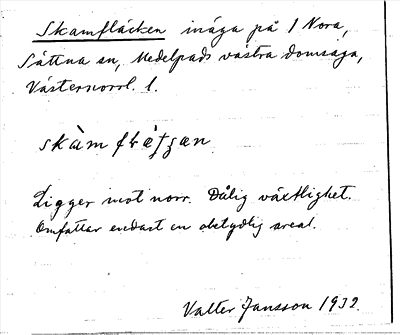 Skamfläcken inäga på 1 Nora,
Sättna sn, Medelpads västra domsaga,
Västernorrl. l.
skàm flæ̀kan
Ligger mot norr. Dålig växtlighet.
Omfattar endast en obetydlig areal.
Valter Jansson 1932.